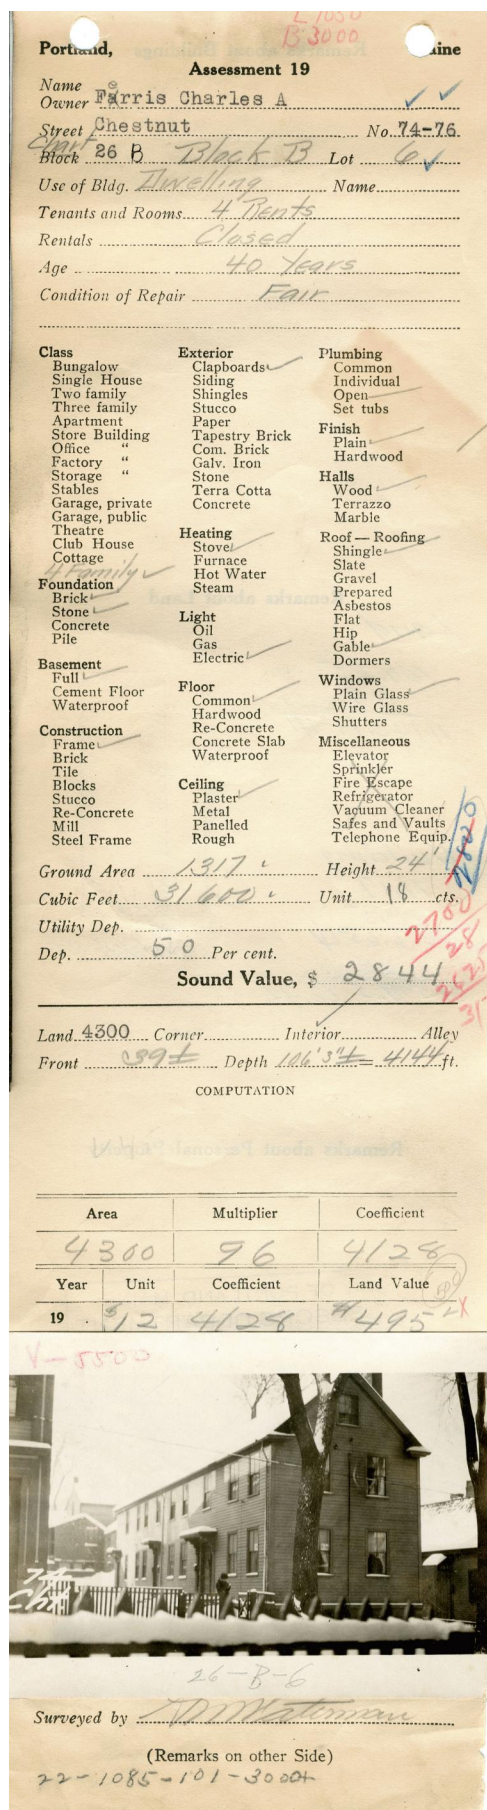 L 1050
B 3000
Portland, Maine
Assessment 19
Name
Owner Farris Charles A
Street Chestnut No. 74-76
Chart
Block 26 B Block B Lot 6
Use of Bldg. Dwelling Name
Tenants and Rooms 4 Rents
Rentals Closed
Age 40 Years
Condition of Repair Fair
Class
Bungalow
Single House
Two family
Three family
Apartment
Store Building
Office "
Factory "
Storage "
Stables
Garage, private
Garage, public
Theatre
Club House
Cottage
4 Family
Foundation
Brick
Stone
Concrete
Pile
Basement
Full
Cement Floor
Waterproof
Construction
Frame
Brick
Tile
Blocks
Stucco
Re-Concrete
Mill
Steel Frame
Exterior
Clapboards
Siding
Shingles
Stucco
Paper
Tapestry Brick
Com. Brick
Galv. Iron
Stone
Terra Cotta
Concrete
Heating
Stove
Furnace
Hot Water
Steam
Light
Oil
Gas
Electric
Floor
Common
Hardwood
Re-Concrete
Concrete Slab
Waterproof
Ceiling
Plaster
Metal
Panelled
Rough
Plumbing
Common
Individual
Open
Set tubs
Finish
Plain
Hardwood
Halls
Wood
Terrazzo
Marble
Roof — Roofing
Shingle
Slate
Gravel
Prepared
Asbestos
Flat
Hip
Gable
Dormers
Windows
Plain Glass
Wire Glass
Shutters
Miscellaneous
Elevator
Sprinkler
Fire Escape
Refrigerator
Vacuum Cleaner
Safes and Vaults
Telephone Equip.
Ground Area 1317 Height 24'
Cubic Feet 31600 Unit 18 cts.
Utility Dep.
2700
28
2625
Dep. 50 Per cent.
Sound Value, $ 2844
Land 4300 Corner Interior Alley
Front 39± Depth 106'3"± = 4144 ft.
COMPUTATION
Area Multiplier Coefficient
4300 96 4128
Year Unit Coefficient Land Value
19 $12 4128 $495
V-5500
74
Cht
26-B-6
Surveyed by Waterman
(Remarks on other Side)
22-1085-101-3000